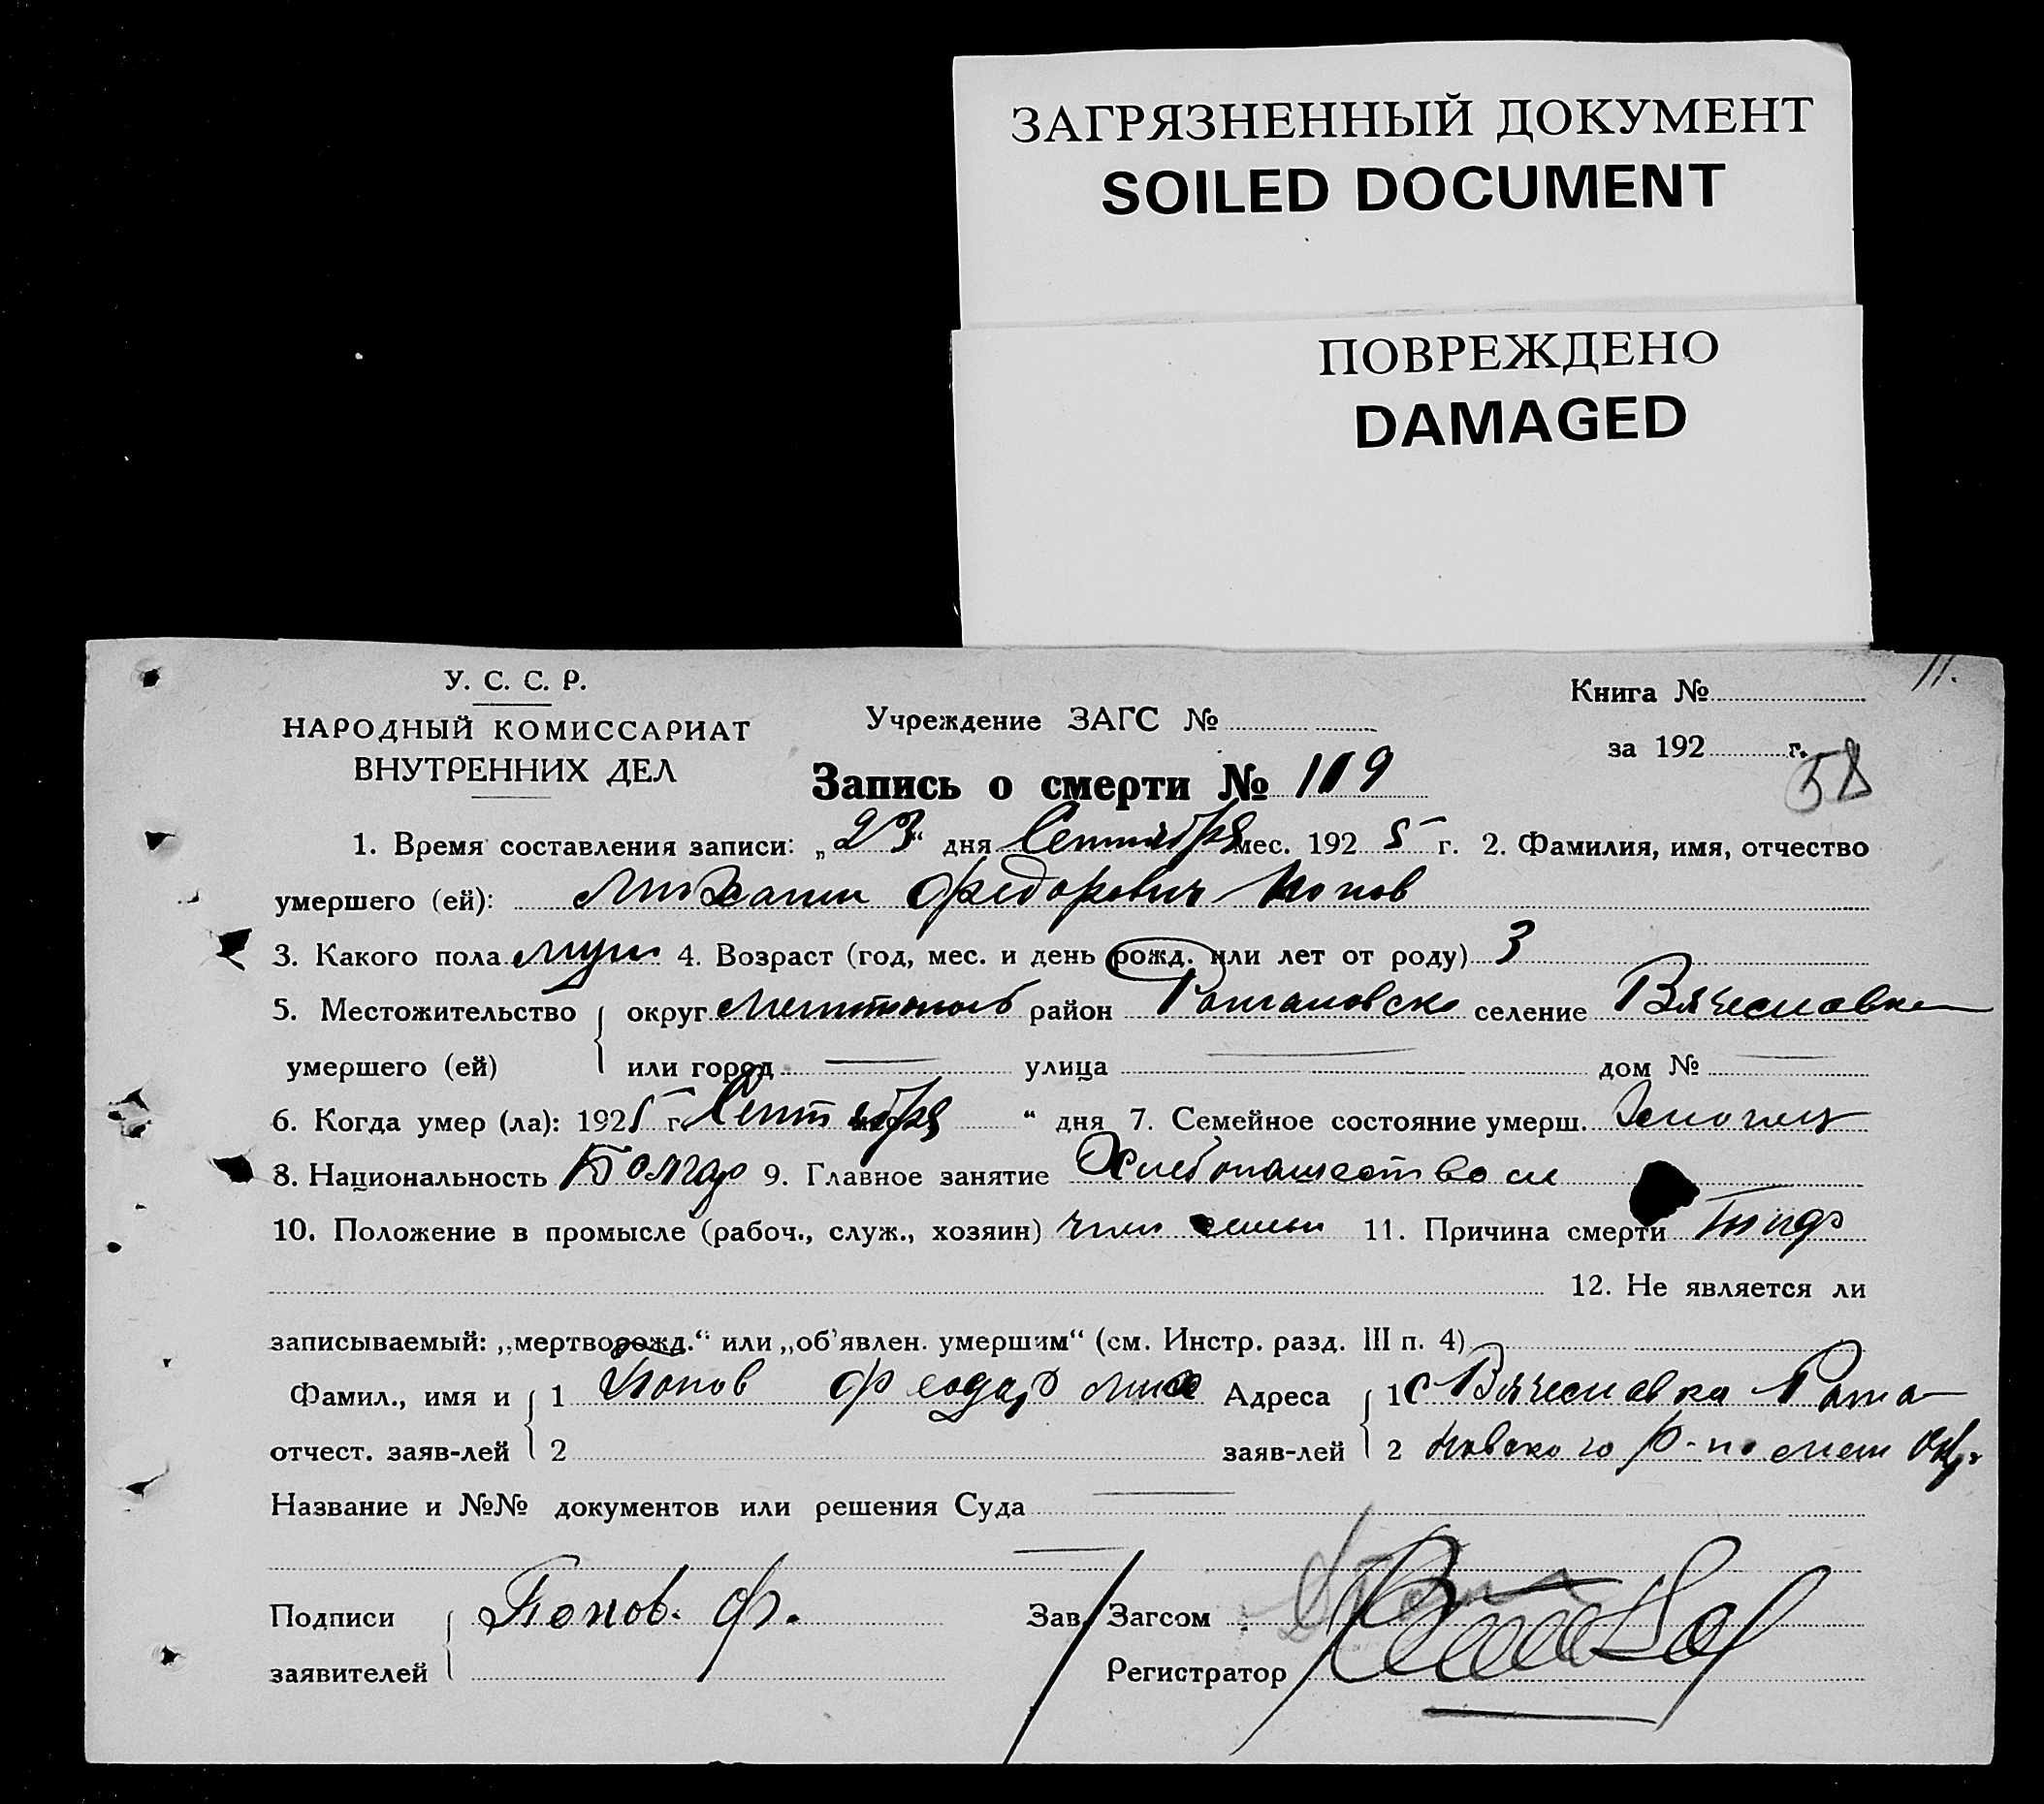 ЗАГРЯЗНЕННЫЙ ДОКУМЕНТ
SOILED DOCUMENT
ПОВРЕЖДЕНО
DAMAGED
11.
У. С. С. Р.
НАРОДНЫЙ КОМИССАРИАТ
ВНУТРЕННИХ ДЕЛ
Учреждение ЗАГС №
Книга №
за 192 г.
58
Запись о смерти № 119
1. Время составления записи: „23“ дня Сентября мес. 1925 г. 2. Фамилия, имя, отчество
умершего (ей): Михаил Федорович Попов
3. Какого пола муж 4. Возраст (год, мес. и день рожд. или лет от роду) 3
5. Местожительство округ Мелитополь район Романовск селение Вячеславка
умершего (ей) или город — улица — дом № —
6. Когда умер (ла): 1925 г. Сентября “ дня 7. Семейное состояние умерш. Холост
8. Национальность Болгар 9. Главное занятие Хлебопашество
10. Положение в промысле (рабоч., служ., хозяин) член семьи 11. Причина смерти Тиф
12. Не является ли
записываемый: „мертворожд.“ или „об'явлен. умершим“ (см. Инстр. разд. III п. 4)
Фамил., имя и 1 Попов Феодор Мих Адреса 1 с Вячеславка Рома-
отчест. заяв-лей 2 заяв-лей 2 новского р-на Мел Окр.
Название и №№ документов или решения Суда —
—
Подписи Попов. Ф. Зав. Загсом
заявителей Регистратор